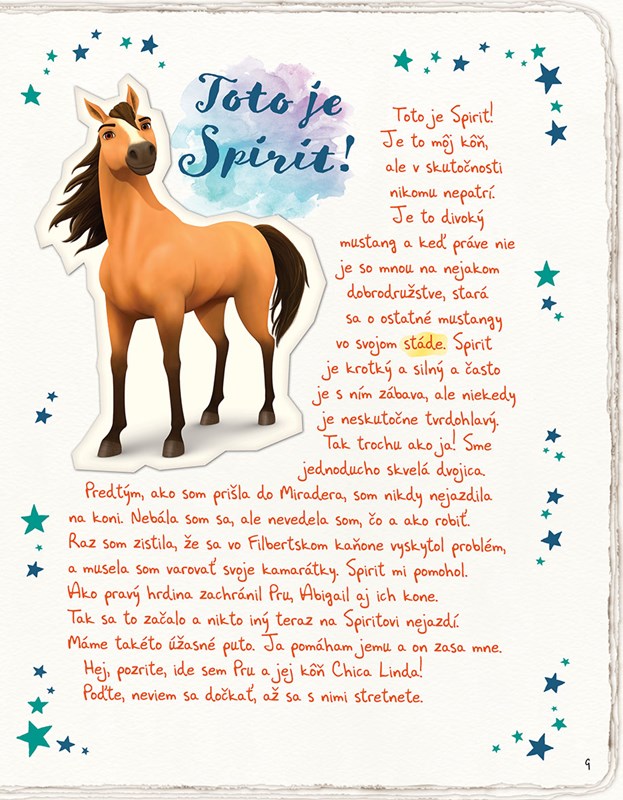 Toto je
Spirit!
Toto je Spirit!
Je to môj kôň,
ale v skutočnosti
nikomu nepatrí.
Je to divoký
mustang a keď práve nie
je so mnou na nejakom
dobrodružstve, stará
sa o ostatné mustangy
vo svojom stáde. Spirit
je krotký a silný a často
je s ním zábava, ale niekedy
je neskutočne tvrdohlavý.
Tak trochu ako ja! Sme
jednoducho skvelá dvojica.
Predtým, ako som prišla do Miradera, som nikdy nejazdila
na koni. Nebála som sa, ale nevedela som, čo a ako robiť.
Raz som zistila, že sa vo Filbertskom kaňone vyskytol problém,
a musela som varovať svoje kamarátky. Spirit mi pomohol.
Ako pravý hrdina zachránil Pru, Abigail aj ich kone.
Tak sa to začalo a nikto iný teraz na Spiritovi nejazdí.
Máme takéto úžasné puto. Ja pomáham jemu a on zasa mne.
Hej, pozrite, ide sem Pru a jej kôň Chica Linda!
Poďte, neviem sa dočkať, až sa s nimi stretnete.
9